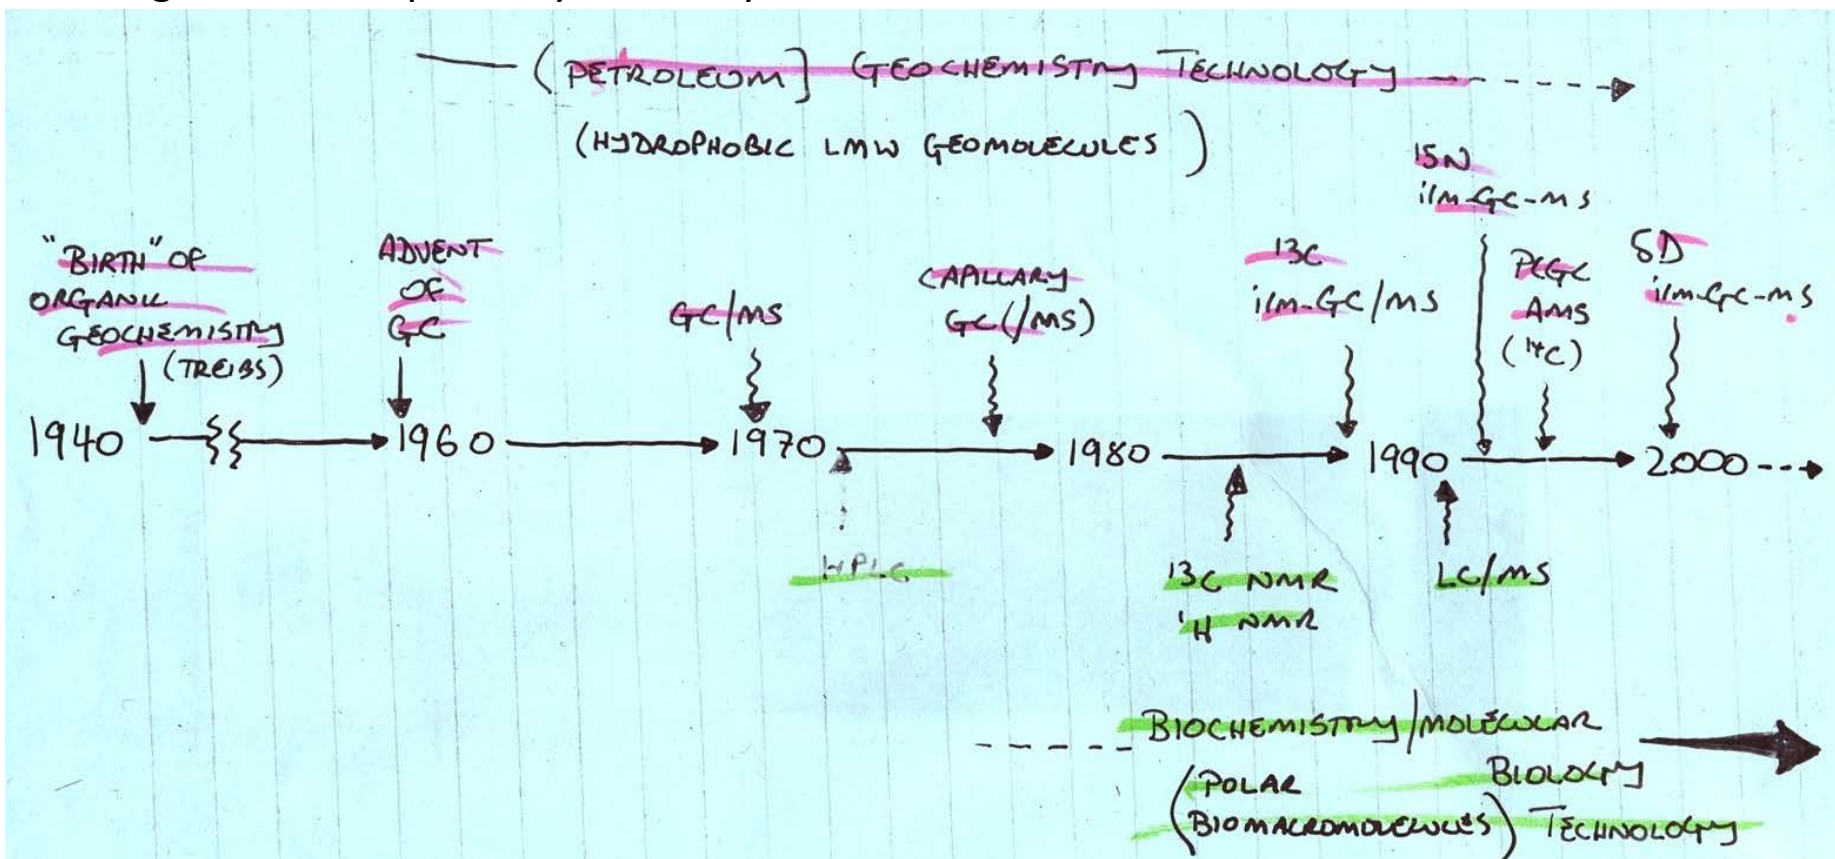 (PETROLEUM] GEOCHEMISTRY TECHNOLOGY
(HYDROPHOBIC LMW GEOMOLECULES)
"BIRTH" OF
ORGANIC
GEOCHEMISTRY
(TREIBS)
ADVENT
OF
GC
GC/MS
CAPILLARY
GC(/MS)
13C
irm-GC/MS
15N
irm-GC-MS
PCGC
AMS
(14C)
δD
irm-GC-MS
1940
1960
1970
1980
1990
2000
HPLC
13C NMR
1H NMR
LC/MS
BIOCHEMISTRY/MOLECULAR
BIOLOGY
(POLAR
BIOMACROMOLECULES) TECHNOLOGY